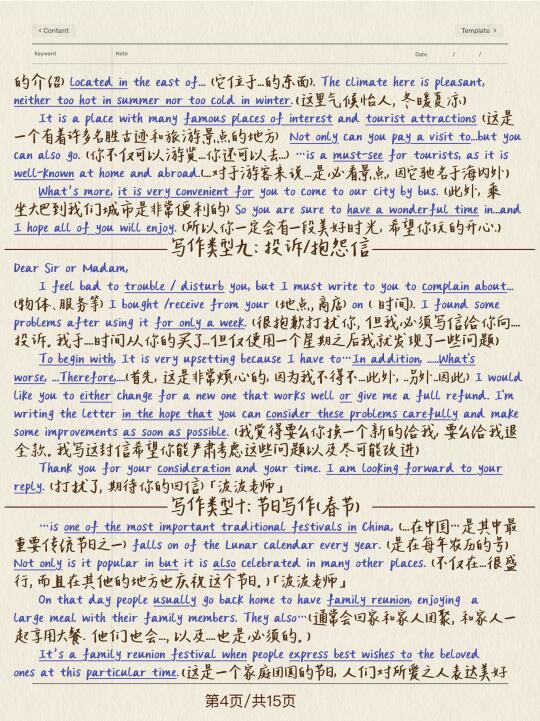 < Content
Template >
Keyword
Note
Date / /
的介绍) located in the east of... (它位于...的东面). The climate here is pleasant,
neither too hot in summer nor too cold in winter. (这里气候怡人, 冬暖夏凉)
It is a place with many famous places of interest and tourist attractions (这是
一个有着许多名胜古迹和旅游景点的地方) Not only can you pay a visit to...but you
can also go. (你不仅可以游览...你还可以去...) …is a must-see for tourists, as it is
well-known at home and abroad.(...对于游客来说...是必看景点, 因它驰名于海内外)
What's more, it is very convenient for you to come to our city by bus. (此外, 乘
坐大巴到我们城市是非常便利的) So you are sure to have a wonderful time in...and
I hope all of you will enjoy. (所以你一定会有一段美好时光, 希望你玩的开心.)
写作类型九: 投诉/抱怨信
Dear Sir or Madam,
I feel bad to trouble / disturb you, but I must write to you to complain about...
(物体、服务等) I bought /receive from your (地点, 商店) on ( 时间). I found some
problems after using it for only a week. (很抱歉打扰你, 但我必须写信给你向....
投诉. 我于....时间从你的买了...但仅使用一个星期之后我就发现了一些问题)
To begin with, It is very upsetting because I have to…In addition, .....What's
worse, ...Therefore,....(首先, 这是非常烦心的, 因为我不得不...此外, ..另外..因此) I would
like you to either change for a new one that works well or give me a full refund. I'm
writing the letter in the hope that you can consider these problems carefully and make
some improvements as soon as possible. (我觉得要么你换一个新的给我, 要么给我退
全款. 我写这封信希望你能严肃考虑这些问题以及尽可能改进)
Thank you for your consideration and your time. I am looking forward to your
reply. (打扰了, 期待你的回信)「波波老师」
写作类型十: 节日写作(春节)
…is one of the most important traditional festivals in China, (...在中国…是其中最
重要传统节日之一) falls on of the Lunar calendar every year. (是在每年农历的号)
Not only is it popular in but it is also celebrated in many other places. (不仅在...很盛
行, 而且在其他的地方也庆祝这个节日. )「波波老师」
On that day people usually go back home to have family reunion, enjoying a
large meal with their family members. They also…(通常会回家和家人团聚, 和家人一
起享用大餐. 他们也会..., 以及...也是必须的. )
It's a family reunion festival when people express best wishes to the beloved
ones at this particular time. (这是一个家庭团圆的节日, 人们对所爱之人表达美好
第4页/共15页